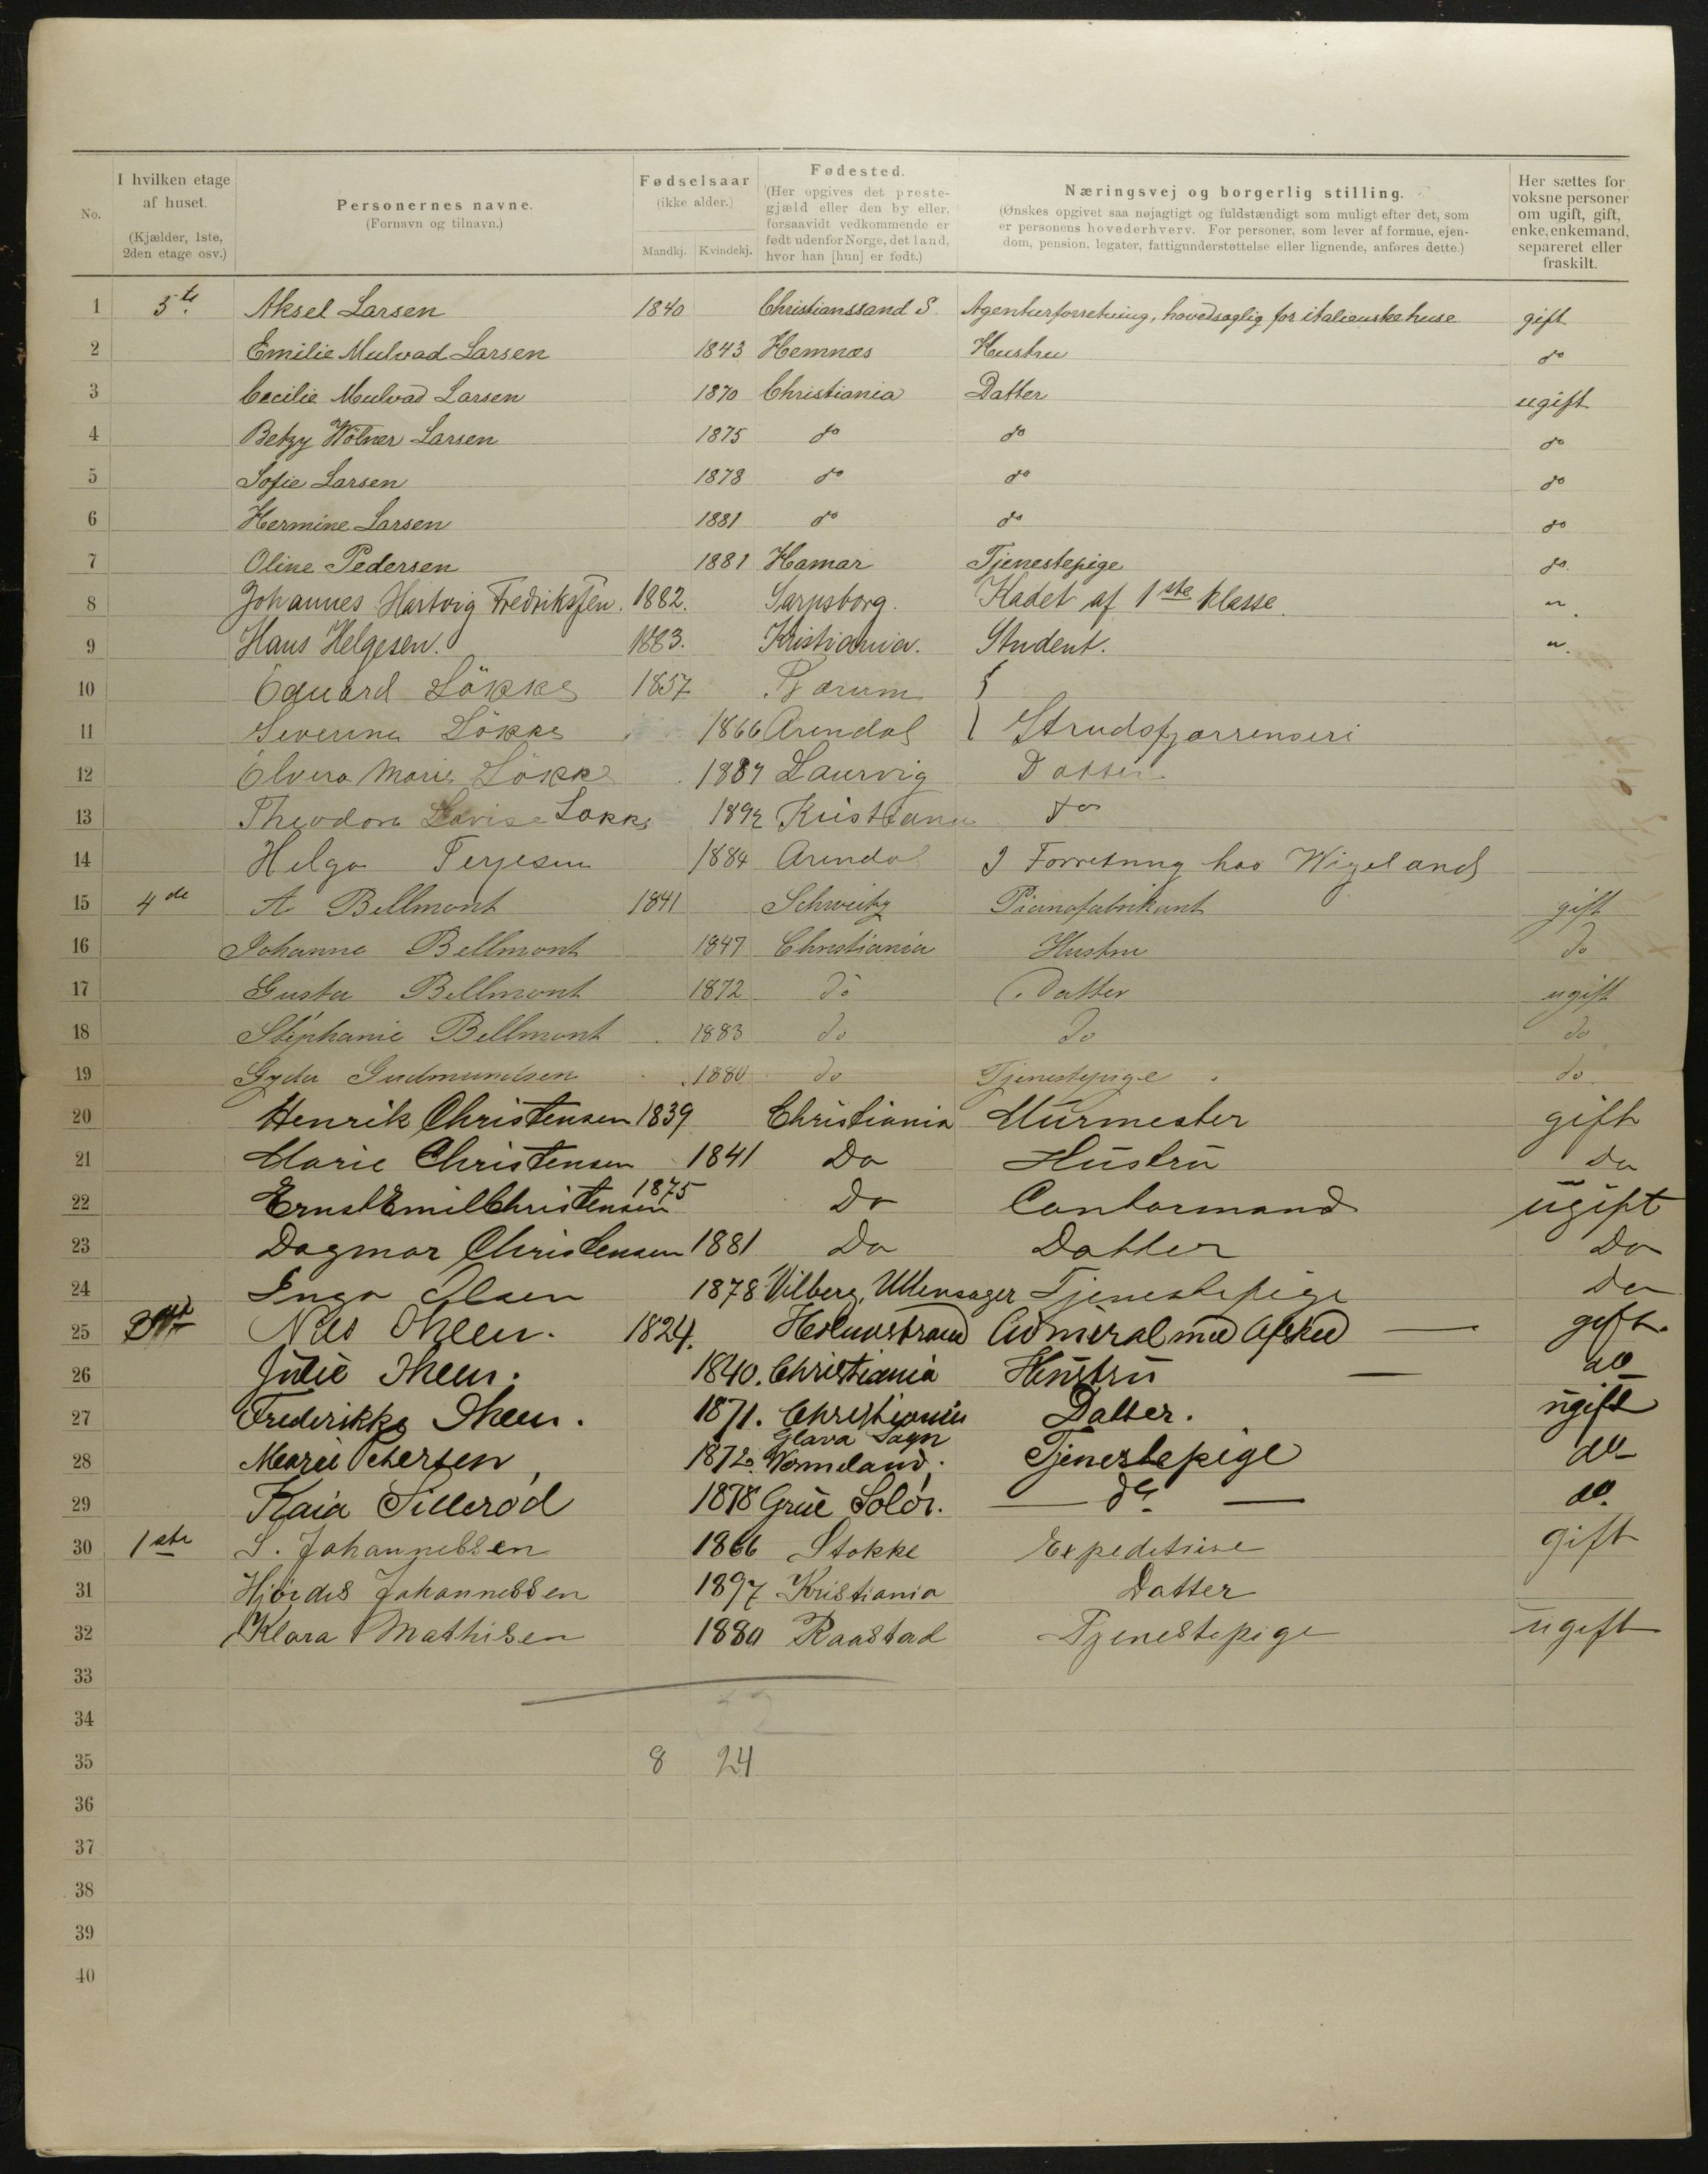 No.
I hvilken etage af huset. (Kjælder, 1ste, 2den etage osv.)
Personernes navne. (Fornavn og tilnavn.)
Fødselsaar (ikke alder.) Mandkj. Kvindekj.
Fødested. (Her opgives det prestegjæld eller den by eller, forsaavidt vedkommende er født udenfor Norge, det land, hvor han [hun] er født.)
Næringsvej og borgerlig stilling. (Ønskes opgivet saa nøjagtigt og fuldstændigt som muligt efter det, som er personens hovederhverv. For personer, som lever af formue, ejendom, pension, legater, fattigunderstøttelse eller lignende, anføres dette.)
Her sættes for voksne personer om ugift, gift, enke, enkemand, separeret eller fraskilt.
1 5te. Aksel Larsen 1840 Christianssand S. Agenturforretning, hovedsaglig for italienske huse gift
2 Emilie Mulvad Larsen 1843 Hemnæs Hustru do
3 Cecilie Mulvad Larsen 1870 Christiania Datter ugift
4 Betzy Wölner Larsen 1875 do do do
5 Sofie Larsen 1878 do do do
6 Hermine Larsen 1881 do do do
7 Oline Pedersen 1881 Hamar Tjenestepige do
8 Johannes Hartvig Fredriksen. 1882. Sarpsborg. Kadet af 1ste klasse. "
9 Hans Helgesen. 1883. Kristiania. Student. "
10 Edvard Lökke 1857 Bærum
11 Severine Lökke 1866 Arendal Strudsfjærrenseri
12 Elvera Marie Lökke 1889 Laurvig Datter
13 Theodora Lovise Lökke 1892 Kristiania do
14 Helga Terjesen 1884 Arendal I Forretning hos Wigelands
15 4de A Bellmont 1841 Schweitz Pianofabrikant gift
16 Johanne Bellmont 1847 Christiania Hustru do
17 Gusta Bellmont 1872 do Datter ugift
18 Stéphanie Bellmont 1883 do do do
19 Gyda Gudmundsen 1880 do Tjenestepige do
20 Henrik Christensen 1839 Christiania Murmester gift
21 Marie Christensen 1841 Do Hustru Do
22 Ernst Emil Christensen 1875 Do Contormand ugift
23 Dagmar Christensen 1881 Do Datter Do
24 Inga Olsen 1878 Vilberg, Ullensager Tjenestepige Do
25 Nils Iheen. 1824. Holmestrand Admiral med Afsked gift.
26 Julie Iheen. 1840. Christiania Hustru do
27 Frederikke Iheen. 1871. Christiania Datter. ugift
28 Marie Petersen 1872. Glava Sogn Vermeland. Tjenestepige do
29 Kaia Sillerød 1878 Grue Solør. do do.
30 1ste S. Johannessen 1866 Stokke Expeditrise gift
31 Hjördis Johannessen 1897 Kristiania Datter
32 Klara Mathisen 1880 Raastad Tjenestepige ugift
33
34 32
35 8 24
36
37
38
39
40